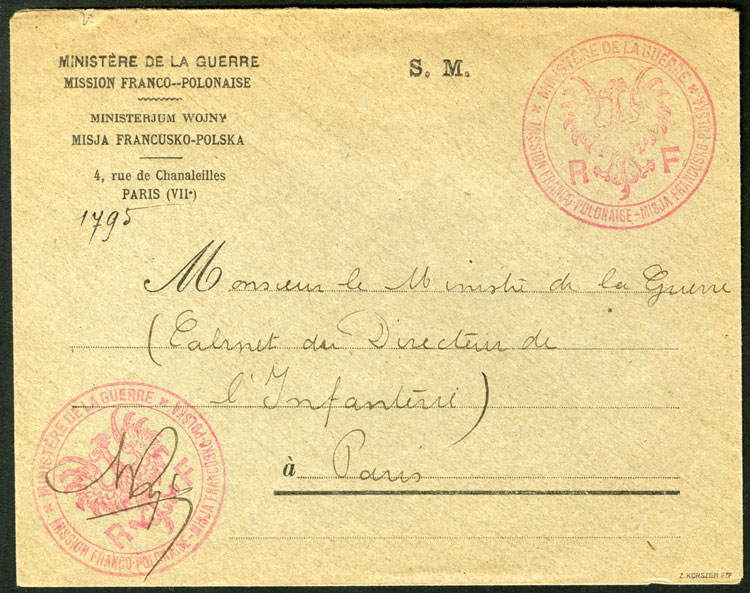 MINISTÈRE DE LA GUERRE
MISSION FRANCO--POLONAISE
MINISTERJUM WOJNY
MISJA FRANCUSKO-POLSKA
4, rue de Chanaleilles
PARIS (VIIe)
1795
S. M.
* MINISTÈRE DE LA GUERRE *
MISSION FRANCO-POLONAISE - MISJA FRANCUSKO-POLSKA
R F
Monsieur le Ministre de la Guerre
(Cabinet du Directeur de
l'Infanterie)
à Paris
* MINISTÈRE DE LA GUERRE *
MISSION FRANCO-POLONAISE - MISJA FRANCUSKO-POLSKA
R F
Z. KORSZEŃ